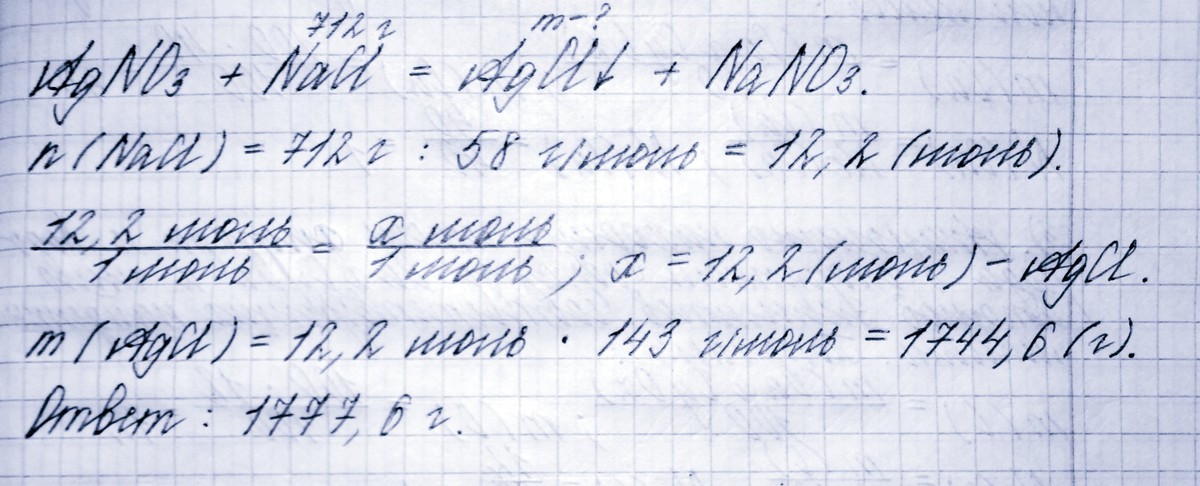 712 г m-?
AgNO3 + NaCl = AgCl↓ + NaNO3.
n (NaCl) = 712 г : 58 г/моль = 12,2 (моль).
12,2 моль / 1 моль = x моль / 1 моль ; x = 12,2 (моль) - AgCl.
m (AgCl) = 12,2 моль · 143 г/моль = 1744,6 (г).
Ответ : 1777,6 г.